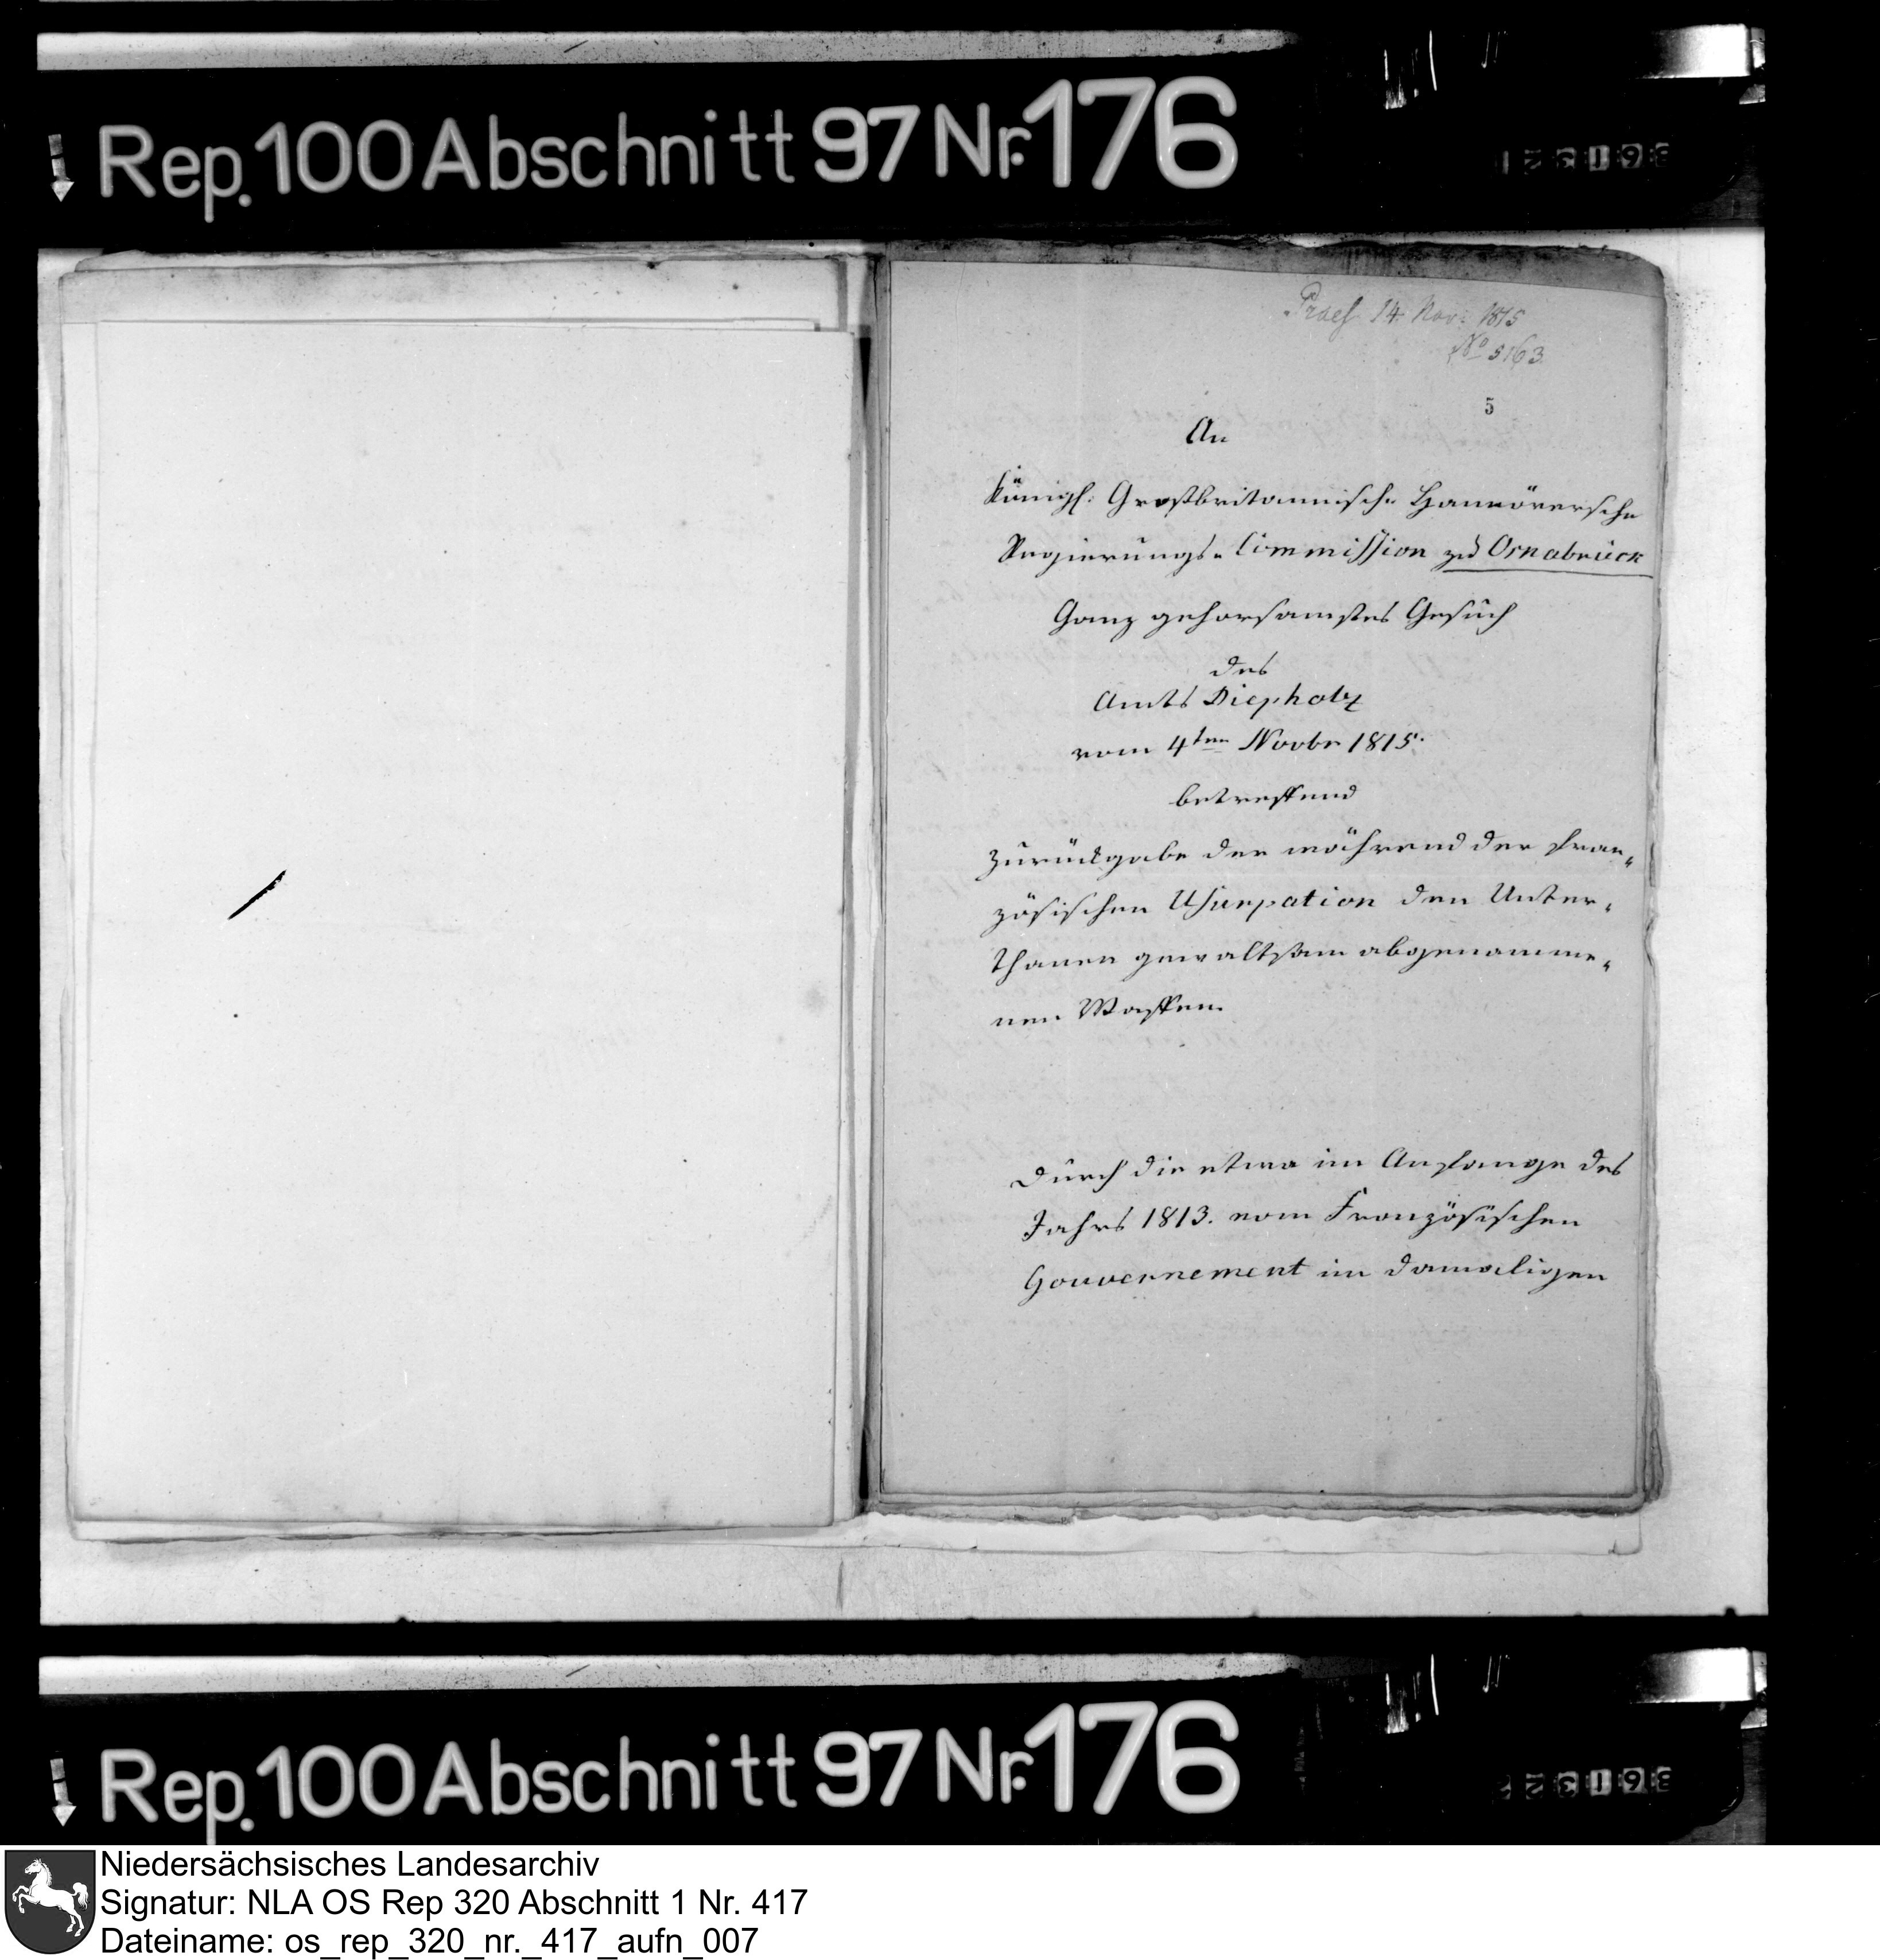 Rep. 100 Abschnitt 97 Nr. 176
Praes 14. Nov: 1815
No 3163.
5
An
Königl: Grosbritannisch- Hannöversche
Regierungs-Commission zu Osnabrück
Ganz gehorsamstes Gesuch
des
Amts Diepholz
vom 4ten Novbr 1815.
betreffend
Zurückgabe der während der fran„
zösischen Usurpation den Unter„
thanen gewaltsam abgenomme„
nen Waffen.
Durch die etwa im Anfange des
Jahrs 1813. vom Französischen
Gouvernement im damaligen
Rep. 100 Abschnitt 97 Nr. 176
Niedersächsisches Landesarchiv
Signatur: NLA OS Rep 320 Abschnitt 1 Nr. 417
Dateiname: os_rep_320_nr._417_aufn_007